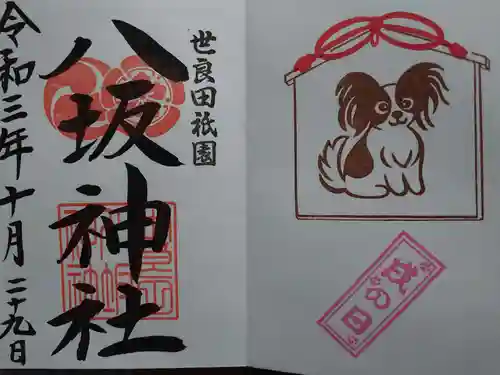 世良田祇園
八坂神社
令和三年十月二十九日
戌の日